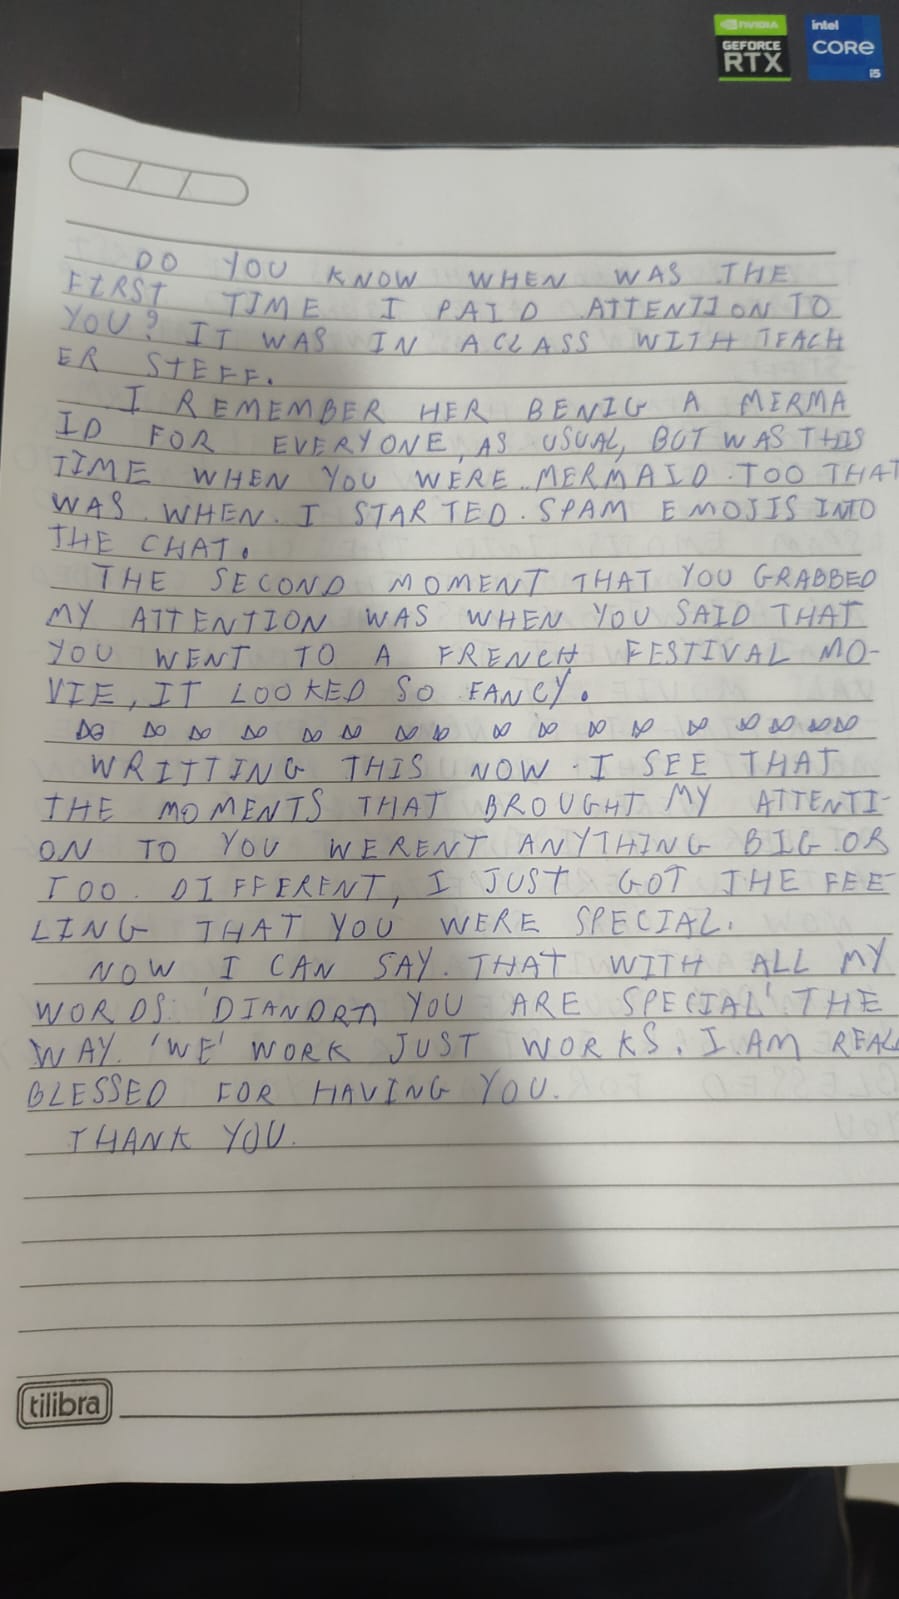 NVIDIA
GEFORCE
RTX
intel
CORE
i5
DO YOU KNOW WHEN WAS THE
FIRST TIME I PAID ATTENTION TO
YOU? IT WAS IN A CLASS WITH TEACH
ER STEFF.
I REMEMBER HER BENIG A MERMA
ID FOR EVERYONE, AS USUAL, BUT WAS THIS
TIME WHEN YOU WERE MERMAID TOO THAT
WAS WHEN I STARTED SPAM EMOJIS INTO
THE CHAT.
THE SECOND MOMENT THAT YOU GRABBED
MY ATTENTION WAS WHEN YOU SAID THAT
YOU WENT TO A FRENCH FESTIVAL MO-
VIE, IT LOOKED SO FANCY.
WRITTING THIS NOW I SEE THAT
THE MOMENTS THAT BROUGHT MY ATTENTI-
ON TO YOU WERENT ANYTHING BIG OR
TOO DIFFERENT, I JUST GOT THE FEE
LING THAT YOU WERE SPECIAL.
NOW I CAN SAY THAT WITH ALL MY
WORDS: 'DIANDRA YOU ARE SPECIAL' THE
WAY 'WE' WORK JUST WORKS. I AM REAL
BLESSED FOR HAVING YOU.
THANK YOU.
tilibra